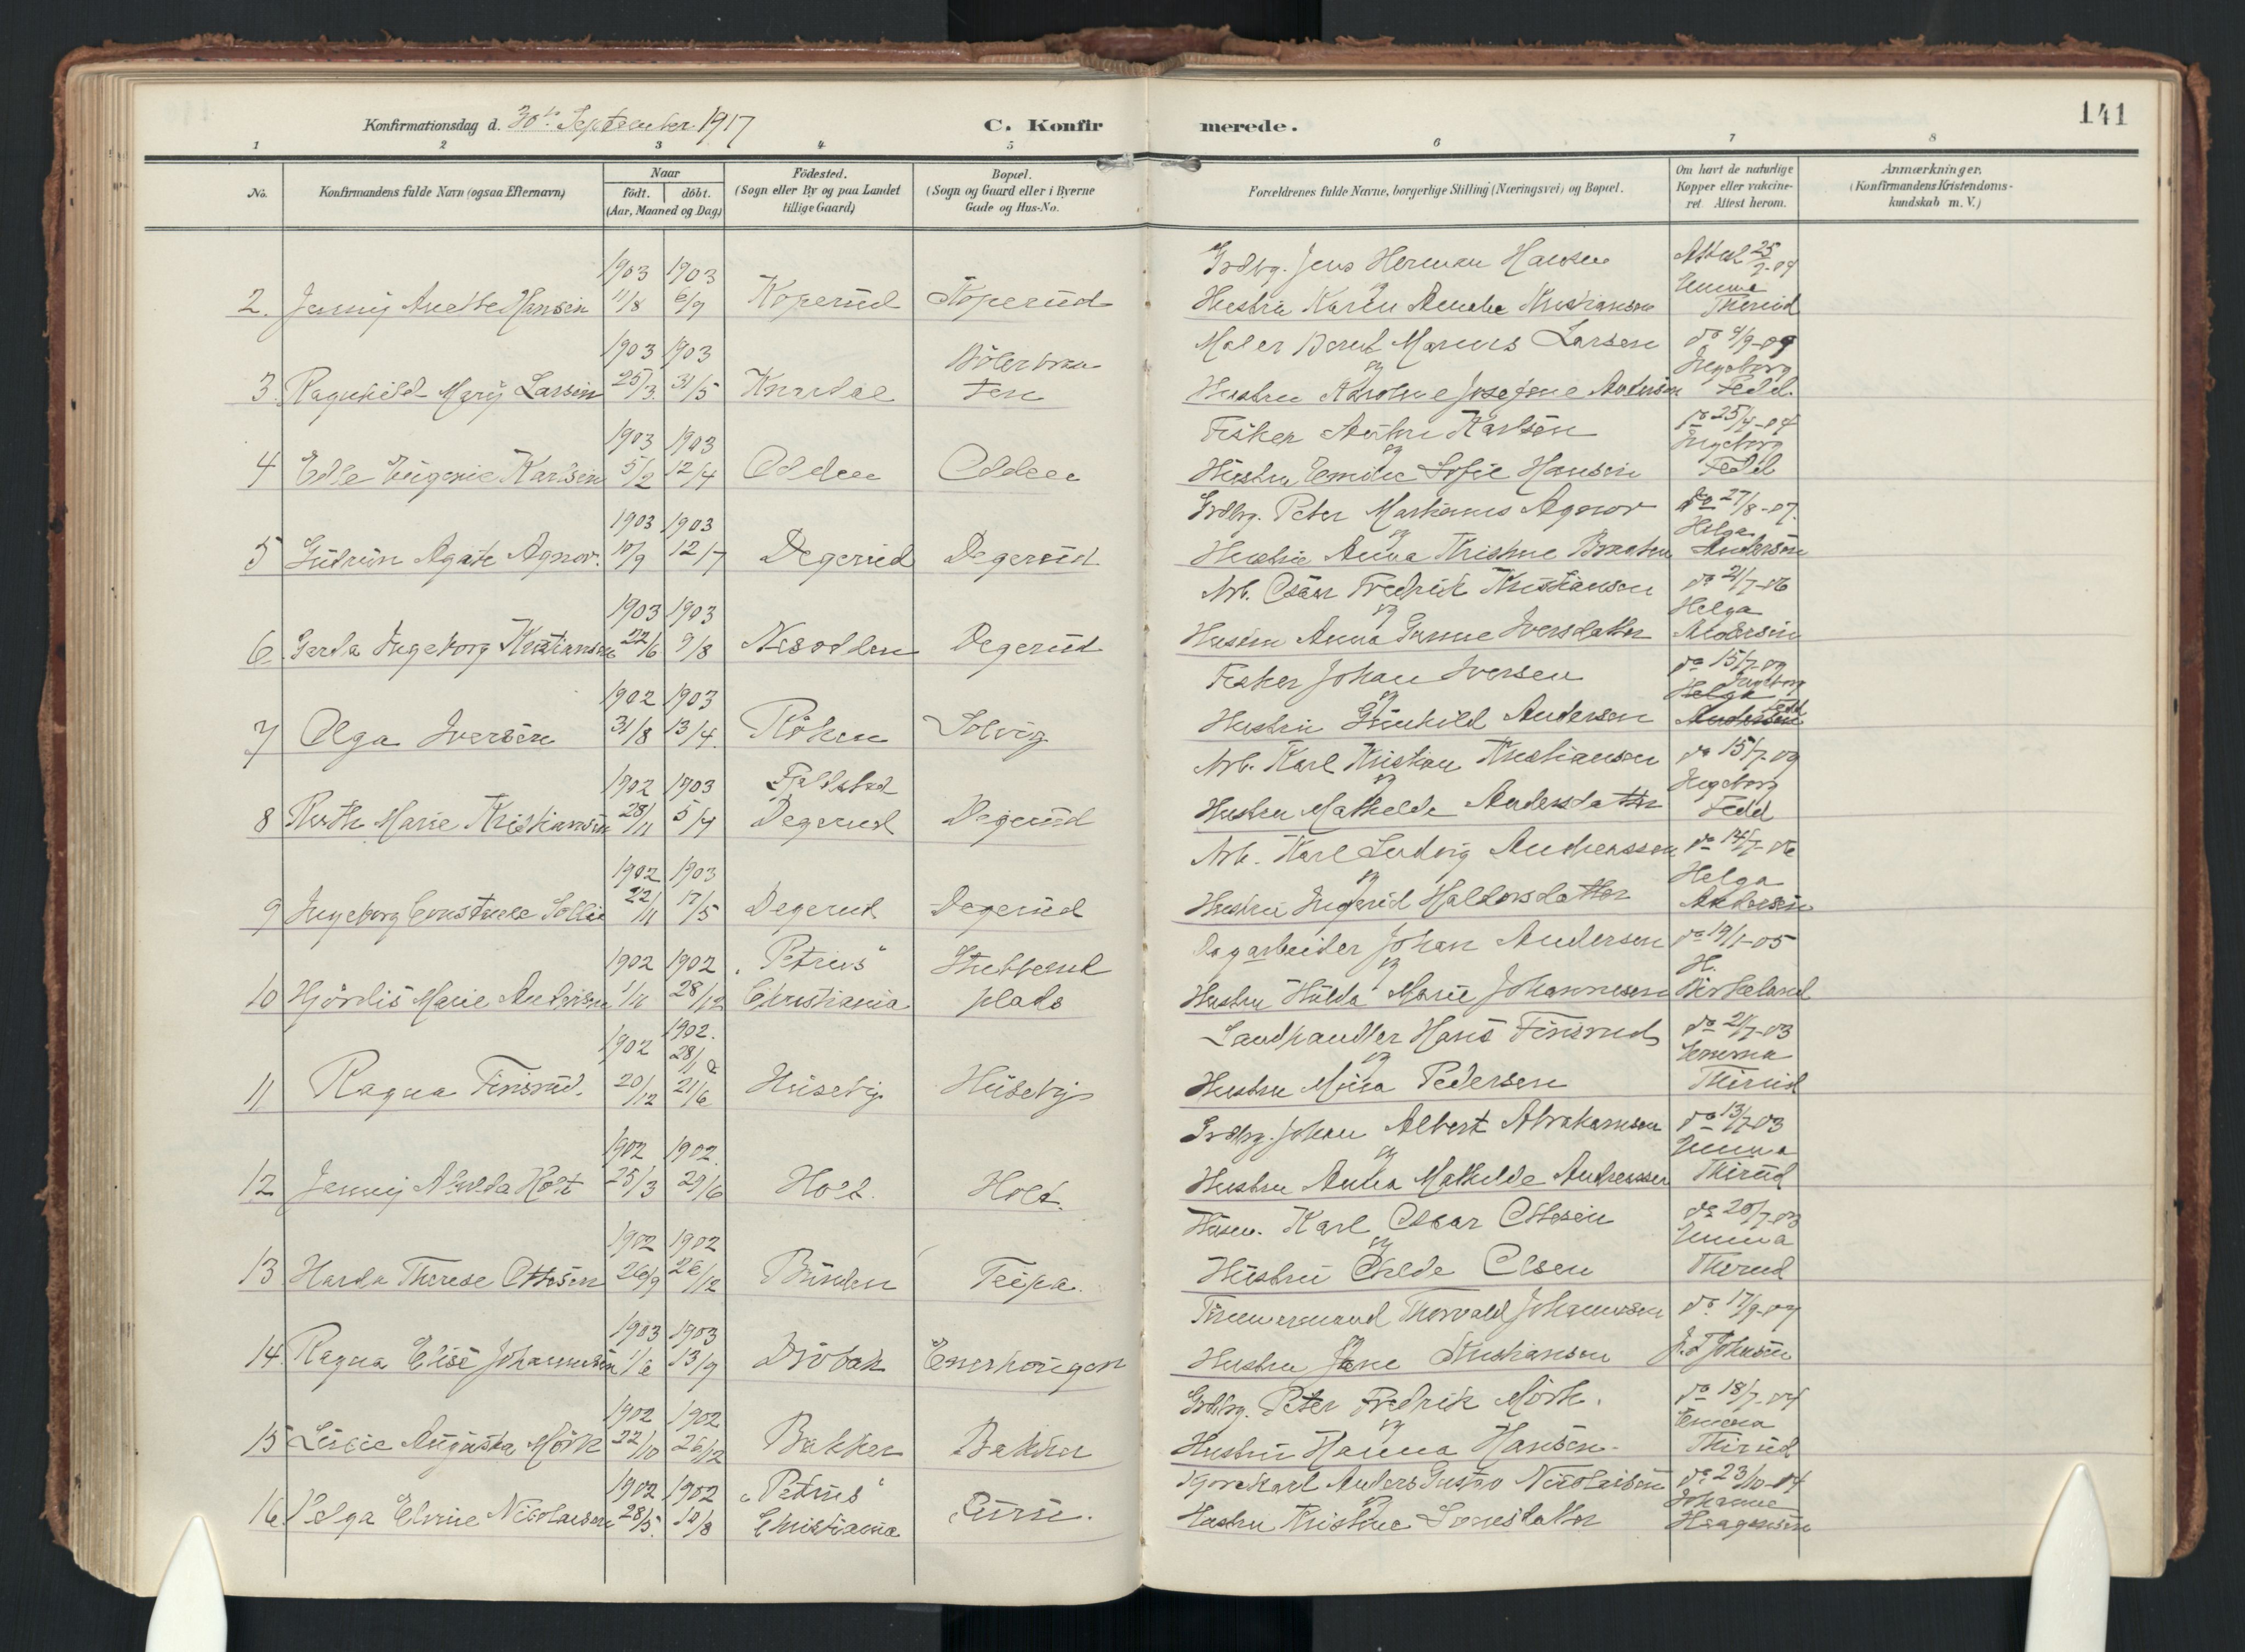 Konfirmationsdag d. 30te September 1917
C. Konfirmerede.
141
1 2 3 4 5 6 7 8
No.
Konfirmandens fulde Navn (ogsaa Efternavn)
Naar
födt. döbt.
(Aar, Maaned og Dag)
Födested.
(Sogn eller By og paa Landet
tillige Gaard)
Bopæl.
(Sogn og Gaard eller i Byerne
Gade og Hus-No.
Forældrenes fulde Navne, borgerlige Stilling (Næringsvei) og Bopæl.
Om havt de naturlige
Kopper eller vakcine-
ret. Attest herom.
Anmærkninger.
(Konfirmandens Kristendoms-
kundskab m. V.)
1903 1903 Grdbrg. Jens Herman Hansen Attest 25/7-04
og Emma
2. Jenny Anette Hansen 11/8 6/9 Koperud Koperud Hustru Karen Amalie Kristiansen Therud
1903 1903 Maler Bernt Marius Larsen do 4/9-09
og Ingeborg
3. Ragnhild Mary Larsen 25/3 31/5 Knardal Hustru Karoline Josefine Andersen Fedd.
1903 1903 Fisker Karlsen do 25/7-04
og Ingeborg
4 Edle Eugenie Karlsen 5/2 12/4 Odden Odden Hustru Emilie Sofie Hansen Fedd
1903 1903 Grdbrg. Peter Markanus Agnor do 27/8-07.
og Helga
5 Gudrun Agate Agnor. 10/9 12/7 Degerud Degerud Hustru Anna Kristine Braaten Andersen
1903 1903 Arb. Oskar Fredrik Kristiansen do 21/7-06
og Helga
6 Gerda Ingeborg Kristiansen 22/6 9/8 Nesodden Degerud Hustru Anna Gunne Iversdatter Andersen
1902 1903 Fisker Johan Iversen do 15/7-09
og Helga Ingeborg
7 Olga Iversen 31/8 13/4 Röken Solvig Hustru Gunhild Andersen Andersen Fedd
1902 1903 Fjeldstad Arb. Karl Kristian Kristiansen do 15/7-09
og Ingeborg
8 Ruth Marie Kristiansen 28/11 5/4 Degerud Degerud Hustru Mathilde Andersdatter Fedd
1902 1903 Arb. Karl Ludvig Andreassen do 14/7-06
og Helga
9 Ingeborg Constance Sollie 22/11 17/5 Degerud Degerud Hustru Ingerid Haldorsdatter Andersen
1902 1902 "Petrus" Stubberud Dagarbeider Johan Andersen do 19/1-05
og H.
10 Hjördis Marie Andersen 1/11 28/12 Christiania plads Hustru Hulda Marie Johannesen Birkeland
1902 1902. 28/1 & Landhandler Hans Finsrud do 21/7-03
og Emma
11 Ragna Finsrud. 20/12 21/6 Huseby Huseby Hustru Mina Pedersen Thirud
1902 1902. Grdbrg. Johan Albert Abrahamsen do 13/7-03
og Emma
12 Jenny Alvilda Holt 25/3 29/6 Holt. Holt. Hustru Anna Mathilde Andreassen Thirud
1902 1902 Husm. Karl Oskar Ottesen do 20/7-03
og Emma
13 Harda Therese Ottesen 26/9 26/12 Bunden Teipa. Hustru Olde Olsen Therud
1903 1903 Tömmermand Thorvald Johannesen do 17/9-09
og
14. Ragna Elise Johannesen 1/6 13/9 Dröbak Enerhougen Hustru Jane Kristiansen J. F. Johnsen
1902 1902 Grdbrg. Peter Fredrik Mörk. do 18/7-04
og Emma
15 Lucie Augusta Mörk 22/10 26/12 Bakker Bakker Hustru Hanna Hansen. Thirud
1902 1902 "Petrus" Kjörekarl Anders Gustav Nicolaisen do 23/10-04
og Johanne
16. Helga Elvine Nicolaisen 28/5. 10/8 Christiania Furu. Hustru Kristine Haagensen